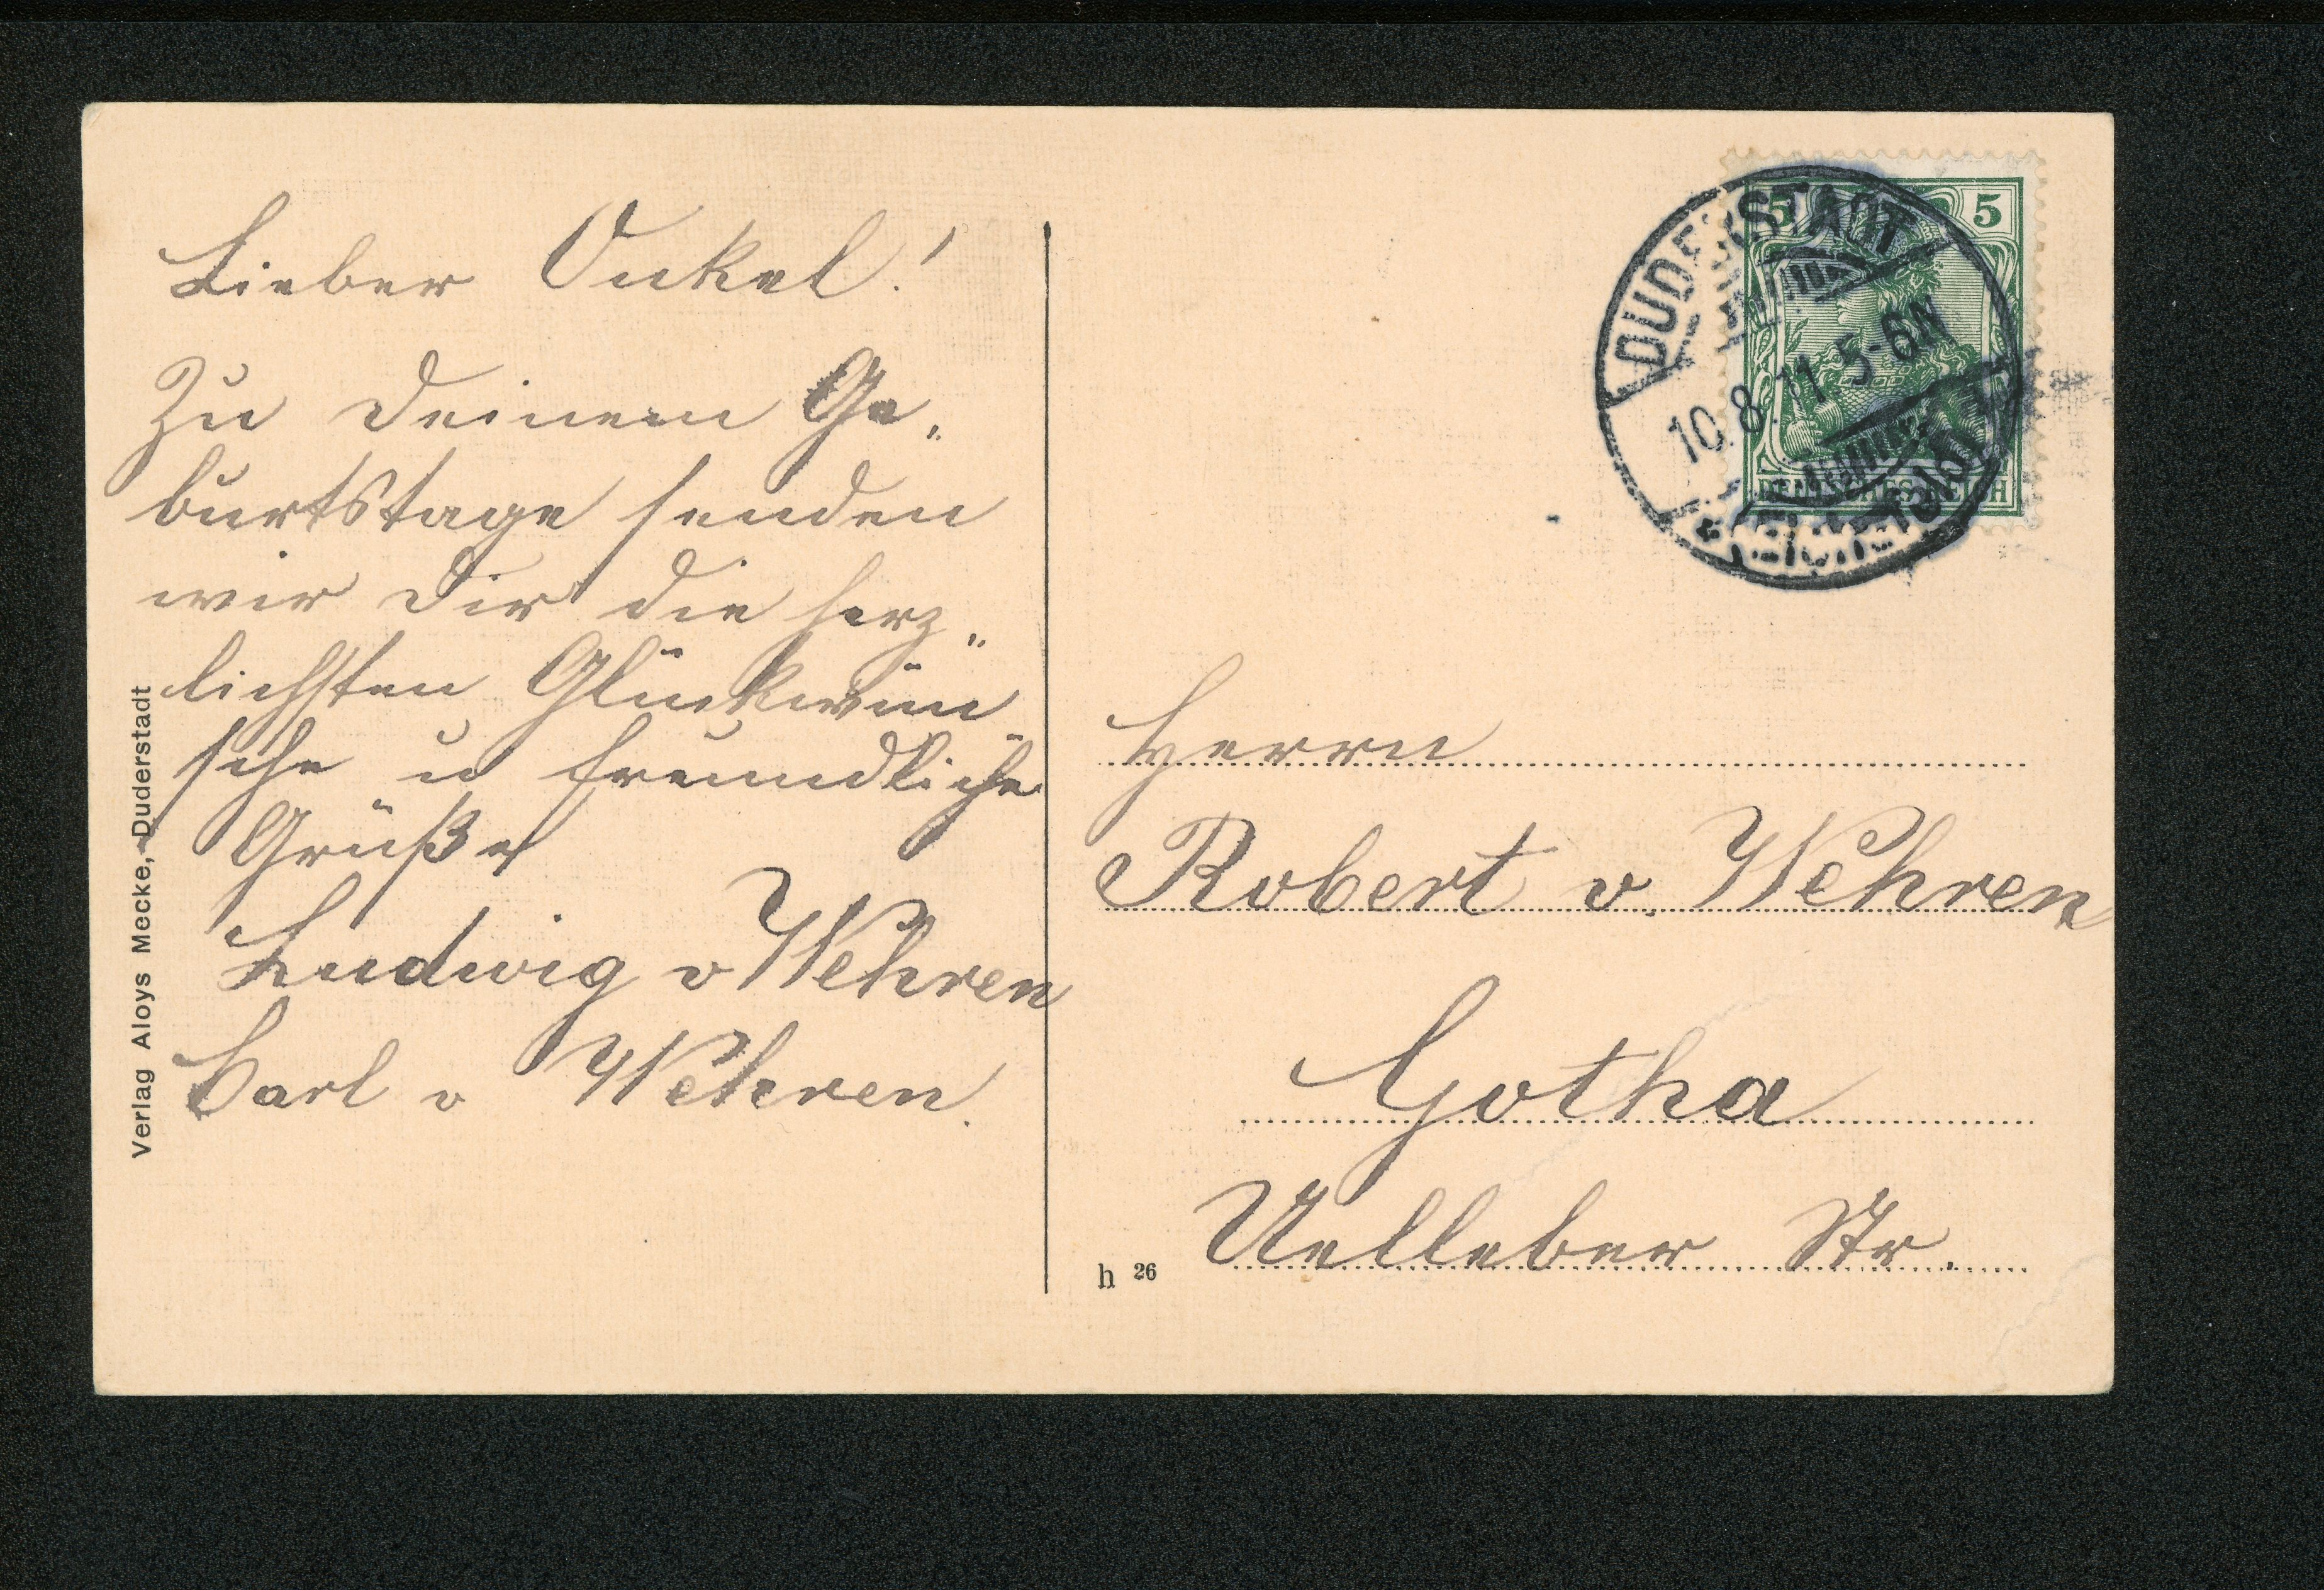 Lieber Onkel!
Zu Deinem Ge„
burtstage senden
wir Dir die herz„
lichsten Glückwün„
sche u freundliche
Grüße
Ludwig v Wehren
Carl v Wehren.
Verlag Aloys Mecke, Duderstadt
DUDERSTADT
10.8.11.5-6N
* (EICHSFELD)
5 5
DEUTSCHES REICH
Herrn
Robert v. Wehren
Gotha
Uelleber Str.
h 26